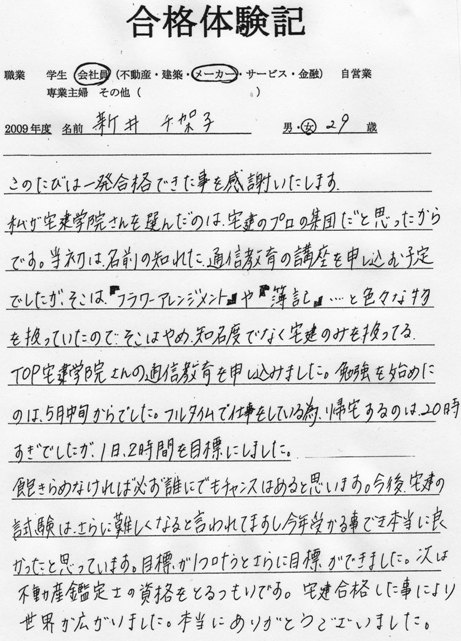 合格体験記
職業 学生 会社員 (不動産・建築・メーカー・サービス・金融) 自営業
専業主婦 その他 ( )
2009年度 名前 新井 千架子 男・女 29 歳
このたびは一発合格できた事を感謝いたします.
私が宅建学院さんを選んだのは、宅建のプロの集団だと思ったから
です。当初は、名前の知れた、通信教育の講座を申し込む予定
でしたが、そこは、『フラワーアレンジメント』や『簿記』…と色々な物
を扱っていたので、そこはやめ、知名度でなく宅建のみを扱ってる、
TOP宅建学院さんの通信教育を申し込みました。勉強を始めた
のは、5月中旬からでした。フルタイムで仕事をしている為、帰宅するのは、20時
すぎでしたが、1日、2時間を目標にしました。
飽きらめなければ必ず誰にでもチャンスはあると思います。今後、宅建の
試験は、さらに難しくなると言われてますし今年受かる事でき本当に良
かったと思っています。目標が1つ叶うとさらに目標ができました。次は
不動産鑑定士の資格をとるつもりです。宅建合格した事により
世界が広がりました。本当にありがとうございました。